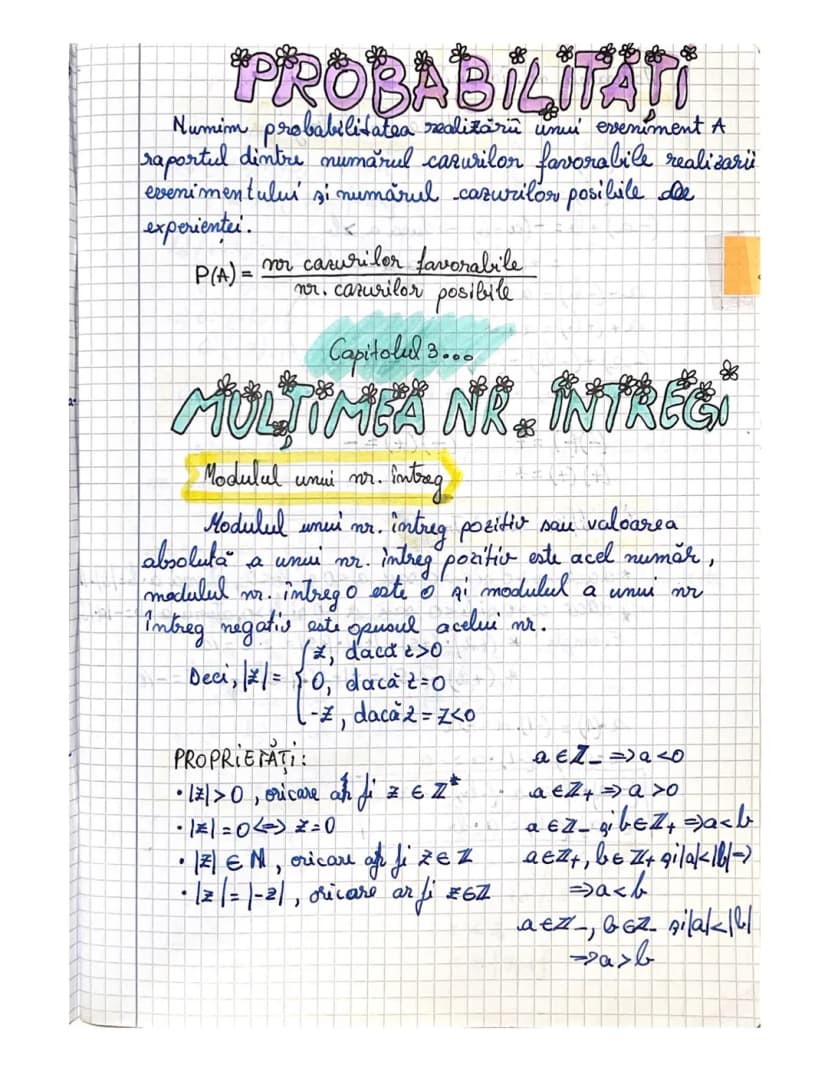 PROBABILITĂȚI
Numim probabilitatea realizării unui eveniment A
raportul dintre numărul cazurilor favorabile realizarii
evenimentului și numărul cazurilor posibile ale
experienței.
P(A) = nr cazurilor favorabile / nr. cazurilor posibile
Capitolul 3...
MULȚIMEA NR. ÎNTREGI
Modulul unui nr. întreg
Modulul unui nr. întreg pozitiv sau valoarea
absolută a unui nr. întreg pozitiv este acel număr,
modulul nr. întreg 0 este 0 și modulul a unui nr
întreg negativ este opusul acelui nr.
Deci, |z| = { z, dacă z>0
0, dacă z=0
-z, dacă z = z<0
PROPRIETĂȚI:
• |z| > 0, oricare ar fi z ∈ Z*
• |z| = 0 <=> z=0
• |z| ∈ N, oricare ar fi z ∈ Z
• |z| = |-z|, oricare ar fi z ∈ Z
a ∈ Z_ => a <0
a ∈ Z+ => a >0
a ∈ Z_ și b ∈ Z+ => a<b
a ∈ Z+, b ∈ Z+ și |a|<|b| =>
=> a<b
a ∈ Z_, b ∈ Z_ și |a|<|b|
=> a>b